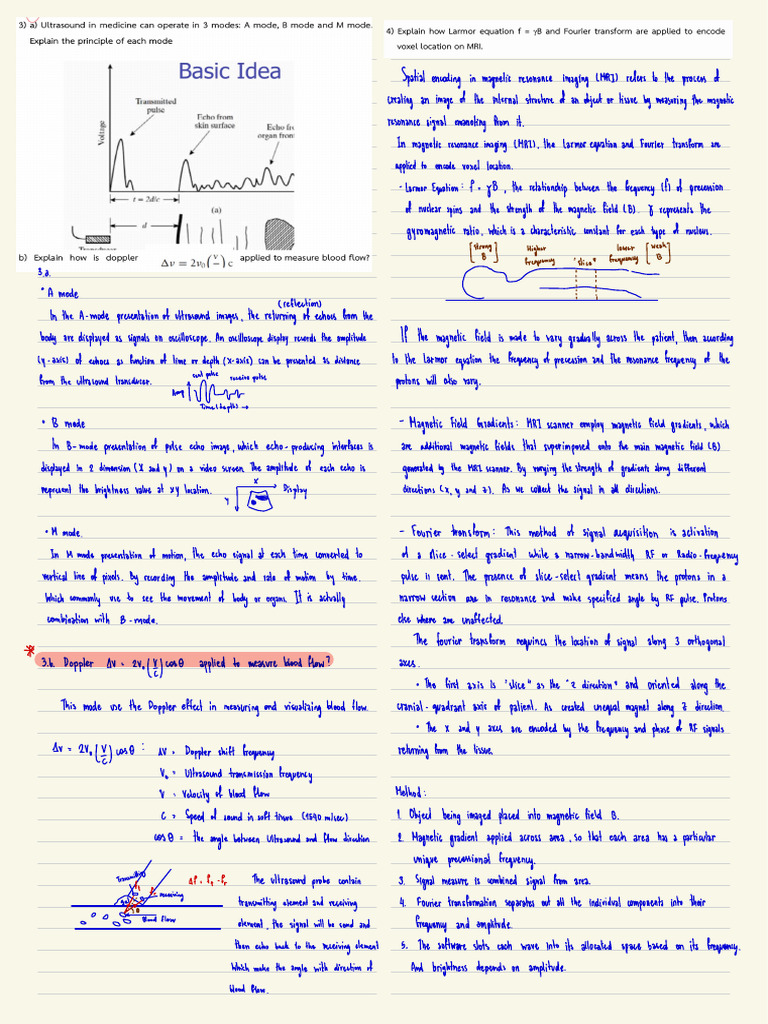 3) a) Ultrasound in medicine can operate in 3 modes: A mode, B mode and M mode.
Explain the principle of each mode
Basic Idea
Transmitted
pulse
Echo from
skin surface
Echo fr
organ front
Voltage
t = 2d/c
(a)
d
b) Explain how is doppler Δv = 2v₀(v/c) applied to measure blood flow?
3.a.
• A mode
(reflection)
In the A-mode presentation of ultrasound images, the returning of echoes from the
body are displayed as signals on oscilloscope. An oscilloscope display records the amplitude
(y-axis) of echoes as function of time or depth (x-axis) can be presented as distance
from the ultrasound transducer.
sent pulse
receive pulse
Amp
Time (depth) →
• B mode
In B-mode presentation of pulse echo image, which echo-producing interfaces is
displayed in 2 dimension (X and y) on a video screen. The amplitude of each echo is
represent the brightness value at xy location.
X
y
Display
• M mode.
In M mode presentation of motion, the echo signal at each time converted to
vertical line of pixels. By recording the amplitude and rate of motion by time.
Which commonly use to see the movement of body or organs. It is actually
combination with B-mode.
3.b. Doppler Δv = 2v₀(v/c)cosθ applied to measure blood flow?
This mode use the Doppler effect in measuring and visualizing blood flow.
Δv = 2v₀(v/c)cosθ : Δv = Doppler shift frequency
V₀ = Ultrasound transmission frequency
V = Velocity of blood flow
C = Speed of sound in soft tissue (1540 m/sec)
cosθ = the angle between Ultrasound and flow direction
Transmitting
receiving
Blood Flow
The ultrasound probe contain
transmitting element and receiving
element, the signal will be send and
then echo back to the receiving element
Which make the angle with direction of
blood flow.
4) Explain how Larmor equation f = γB and Fourier transform are applied to encode
voxel location on MRI.
Spatial encoding in magnetic resonance imaging (MRI) refers to the process of
creating an image of the internal structure of an object or tissue by measuring the magnetic
resonance signal emanating from it.
In magnetic resonance imaging (MRI), the Larmor equation and Fourier transform are
applied to encode voxel location.
- Larmor Equation: f = γB, the relationship between the frequency (f) of precession
of nuclear spins and the strength of the magnetic field (B). γ represents the
gyromagnetic ratio, which is a characteristic constant for each type of nucleus.
[strong B]
Higher frequency
"slice"
lower frequency
[weak B]
If the magnetic field is made to vary gradually across the patient, then according
to the Larmor equation the frequency of precession and the resonance frequency of the
protons will also vary.
- Magnetic Field Gradients: MRI scanner employ magnetic field gradients, which
are additional magnetic fields that superimposed onto the main magnetic field (B)
generated by the MRI scanner. By varying the strength of gradients along different
directions (x, y and z). As we collect the signal in all directions.
- Fourier transform: This method of signal acquisition is activation
of a slice-select gradient while a narrow-bandwidth RF or Radio-frequency
pulse is sent. The presence of slice-select gradient means the protons in a
narrow section are in resonance and make specified angle by RF pulse. Protons
else where are unaffected.
The fourier transform requires the location of signal along 3 orthogonal
axes.
• The first axis is "slice" as the "z direction" and oriented along the
cranial-quadrant axis of patient. As created unequal magnet along z direction
• The x and y axes are encoded by the frequency and phase of RF signals
returning from the tissue.
Method:
1. Object being imaged placed into magnetic field B.
2. Magnetic gradient applied across area, so that each area has a particular
unique precessional frequency.
3. Signal measure is combined signal from area.
4. Fourier transformation separates out all the individual components into their
frequency and amplitude.
5. The software slots each wave into its allocated space based on its frequency.
And brightness depends on amplitude.